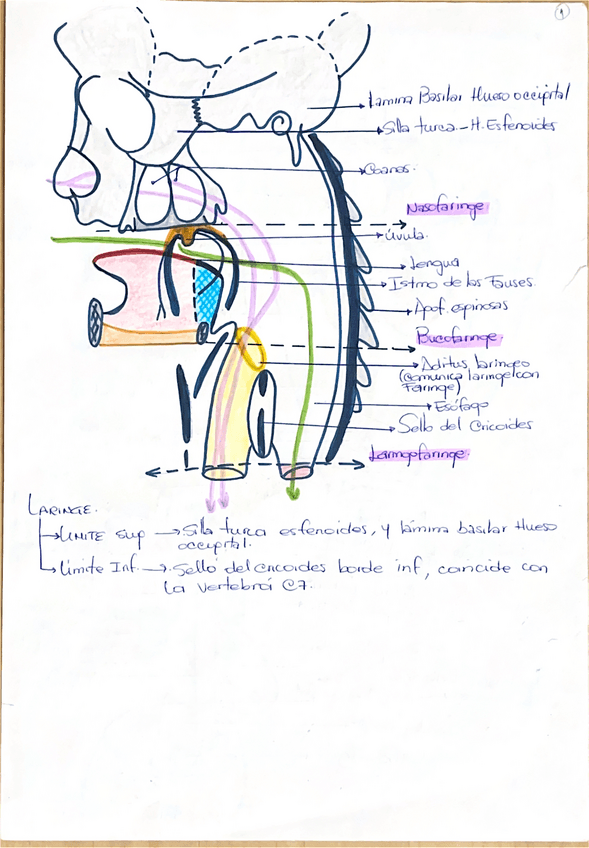 1
Lámina Basilar Hueso occipital
Silla turca - H. Esfenoides
Coanas.
Nasofaringe
Úvula.
Lengua
Istmo de las Fauses.
Apof. espinosas
Bucofaringe
Aditus laríngeo
(comunica laringe con
Faringe)
Esófago
Sello del Cricoides
Laringofaringe
LARINGE.
LIMITE SUP → Silla turca esfenoides, y lámina basilar Hueso
occipital.
Límite Inf. → Sello del cricoides borde inf, coincide con
la vertebra C7.